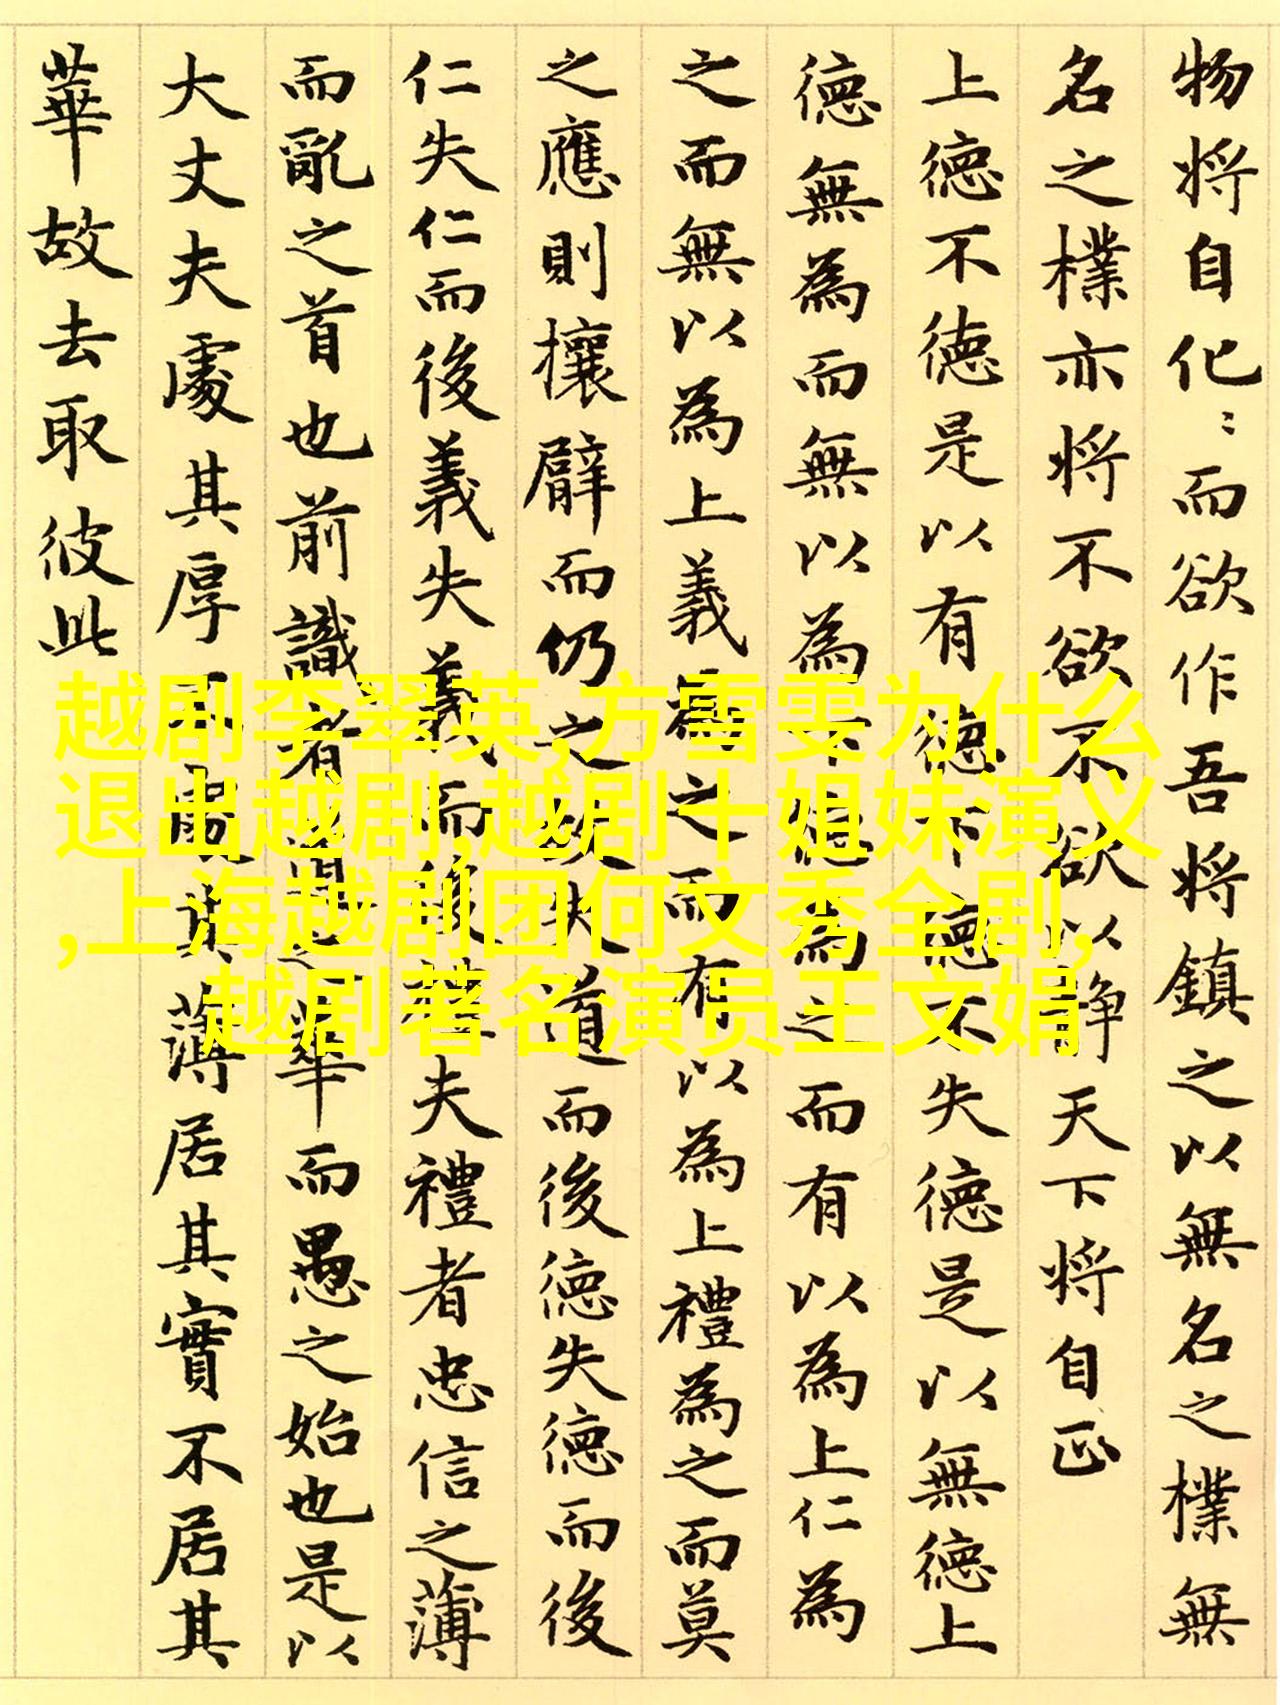 物将自化〻而欲作吾将鎮之以無名之樸無
名之樸亦将不欲不欲以静天下将自正
上德不德是以有德下德不失德是以無德上
德無為而無以為下德為之而有以為上仁為
之而無以為上義為之而有以為上禮為之而莫
之應則攘臂而仍之故失道而後德失德而後
仁失仁而後義失義而後禮夫禮者忠信之薄
而亂之首也前識者道之華而愚之始也是以
大丈夫處其厚不處其薄居其實不居其
華故去取彼此
越剧李翠英,方雪雯为什么
退出越剧,越剧十姐妹演义
,上海越剧团何文秀全剧,
越剧著名演员王文娟